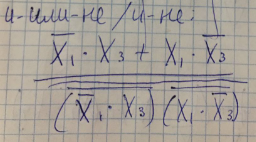 и-или-не/и-не:
X̅₁ · X₃ + X₁ · X̅₃
(X̅₁ · X₃) (X₁ · X̅₃)